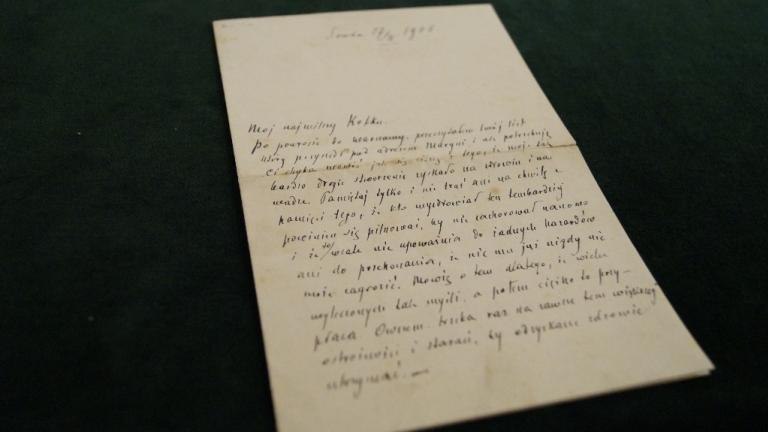 1905
Mój najmilszy Kotku.
Po powrocie do Warszawy, przeczytałem twój list
który przyszedł pod adresem Maryni i nie potrzebuję
Ci chyba mówić jak się cieszę z tego, że moje tak
bardzo drogie stworzenie zyskało na zdrowiu i na
wadze. Pamiętaj tylko i nie trać ani na chwilę z
pamięci tego, że kto wyzdrowiał ten tembardziej
powinien się pilnować, by nie zachorować nanowo
i że to wcale nie upoważnia do żadnych hazardów
ani do przekonania, że nic mu już nigdy nie
może zagrozić. Mówię o tem dlatego, że wielu
wyleczonych tak myśli, a potem ciężko to przy-
płaca. Owszem trzeba raz na zawsze tem większej
ostrożności i starań, by odzyskane zdrowie
utrzymać. —